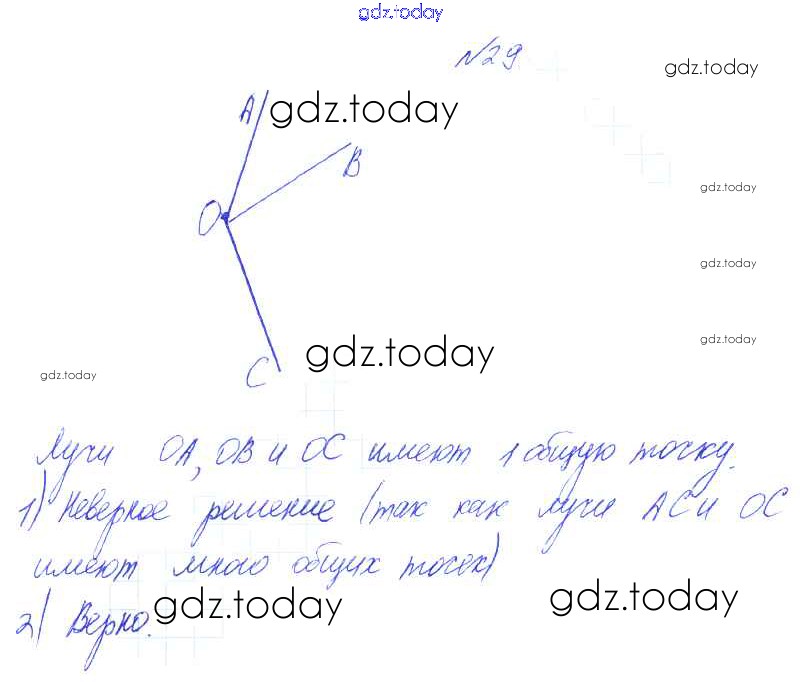 gdz.today
№29
gdz.today
A
gdz.today
B
gdz.today
O
gdz.today
gdz.today
gdz.today
C
gdz.today
Лучи OA, OB и OC имеют 1 общую точку.
1) Неверное решение (так как лучи AC и OC
имеют много общих точек)
2) Верно.
gdz.today
gdz.today